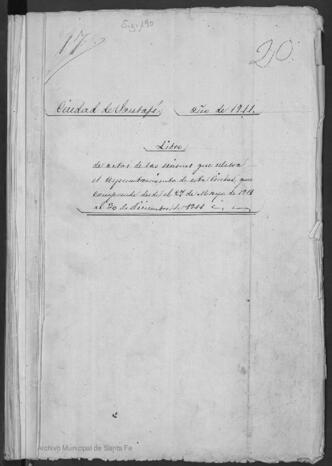 17
Sig: 190
20.
Ciudad de Santafé. Año de 1911.
Libro
de actas de las sesiones que celebra
el Ayuntamiento de esta Ciudad, que
comprende desde el 27 de Mayo de
al 30 de Diciembre de 1911
Archivo Municipal de Santa Fe